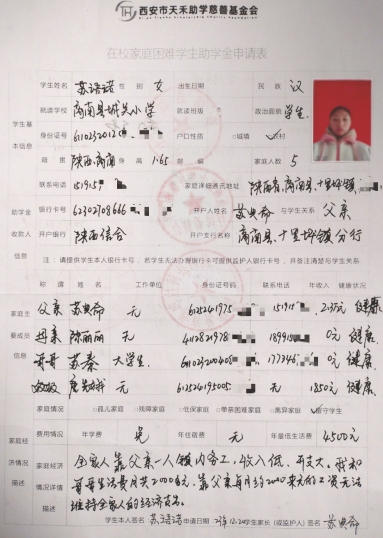 西安市天禾助学慈善基金会
在校家庭困难学生助学金申请表
学生基本信息
学生姓名 苏语诺 性别 女 出生日期 民族 汉
就读学校 商南县城关小学 就读班级 政治面貌 学生
身份证号 6110232012 户口性质 □城镇 ✓农村
籍贯 陕西·商南 身高 1.65 邮编 家庭人数 5
助学金收款人信息
联系电话 15915 家庭详细通讯地址 陕西省,商南县,十里坪镇
银行卡号 62302708666 开户人姓名 苏典希 与学生关系 父亲
开户银行 陕西信合 开户支行名称 商南县,十里坪镇分行
注:请提供学生本人银行卡号,若学生无法办理银行卡可提供监护人银行卡号,并备注清楚与学生关系
家庭主要成员信息
称谓 姓名 工作单位 身份证号码 联系电话 年收入 健康状况
父亲 苏典希 无 6125241975 15915 2.3万元 健康
母亲 陈丽丽 无 4112821978 189915 0元 健康
哥哥 苏秦 大学生 611023200408 177346 0元 健康
无 612524195005 无 1850元 健康
家庭经济情况描述
家庭情况 □孤儿家庭 □残障家庭 □低保家庭 □单亲困难家庭 □离异家庭 ✓留守学生
费用情况 年学费 免 年住宿费 无 年最低生活费 4500元
家庭经济情况详情描述
全家人靠父亲一人镇内务工,收入低、开支大。我和
哥哥生活费月共2000多元,靠父亲每月约2000来元的工资无法
维持全家人的经济支出。
学生本人签名 苏语诺 申请日期 学生家长(或监护人)签名 苏典希